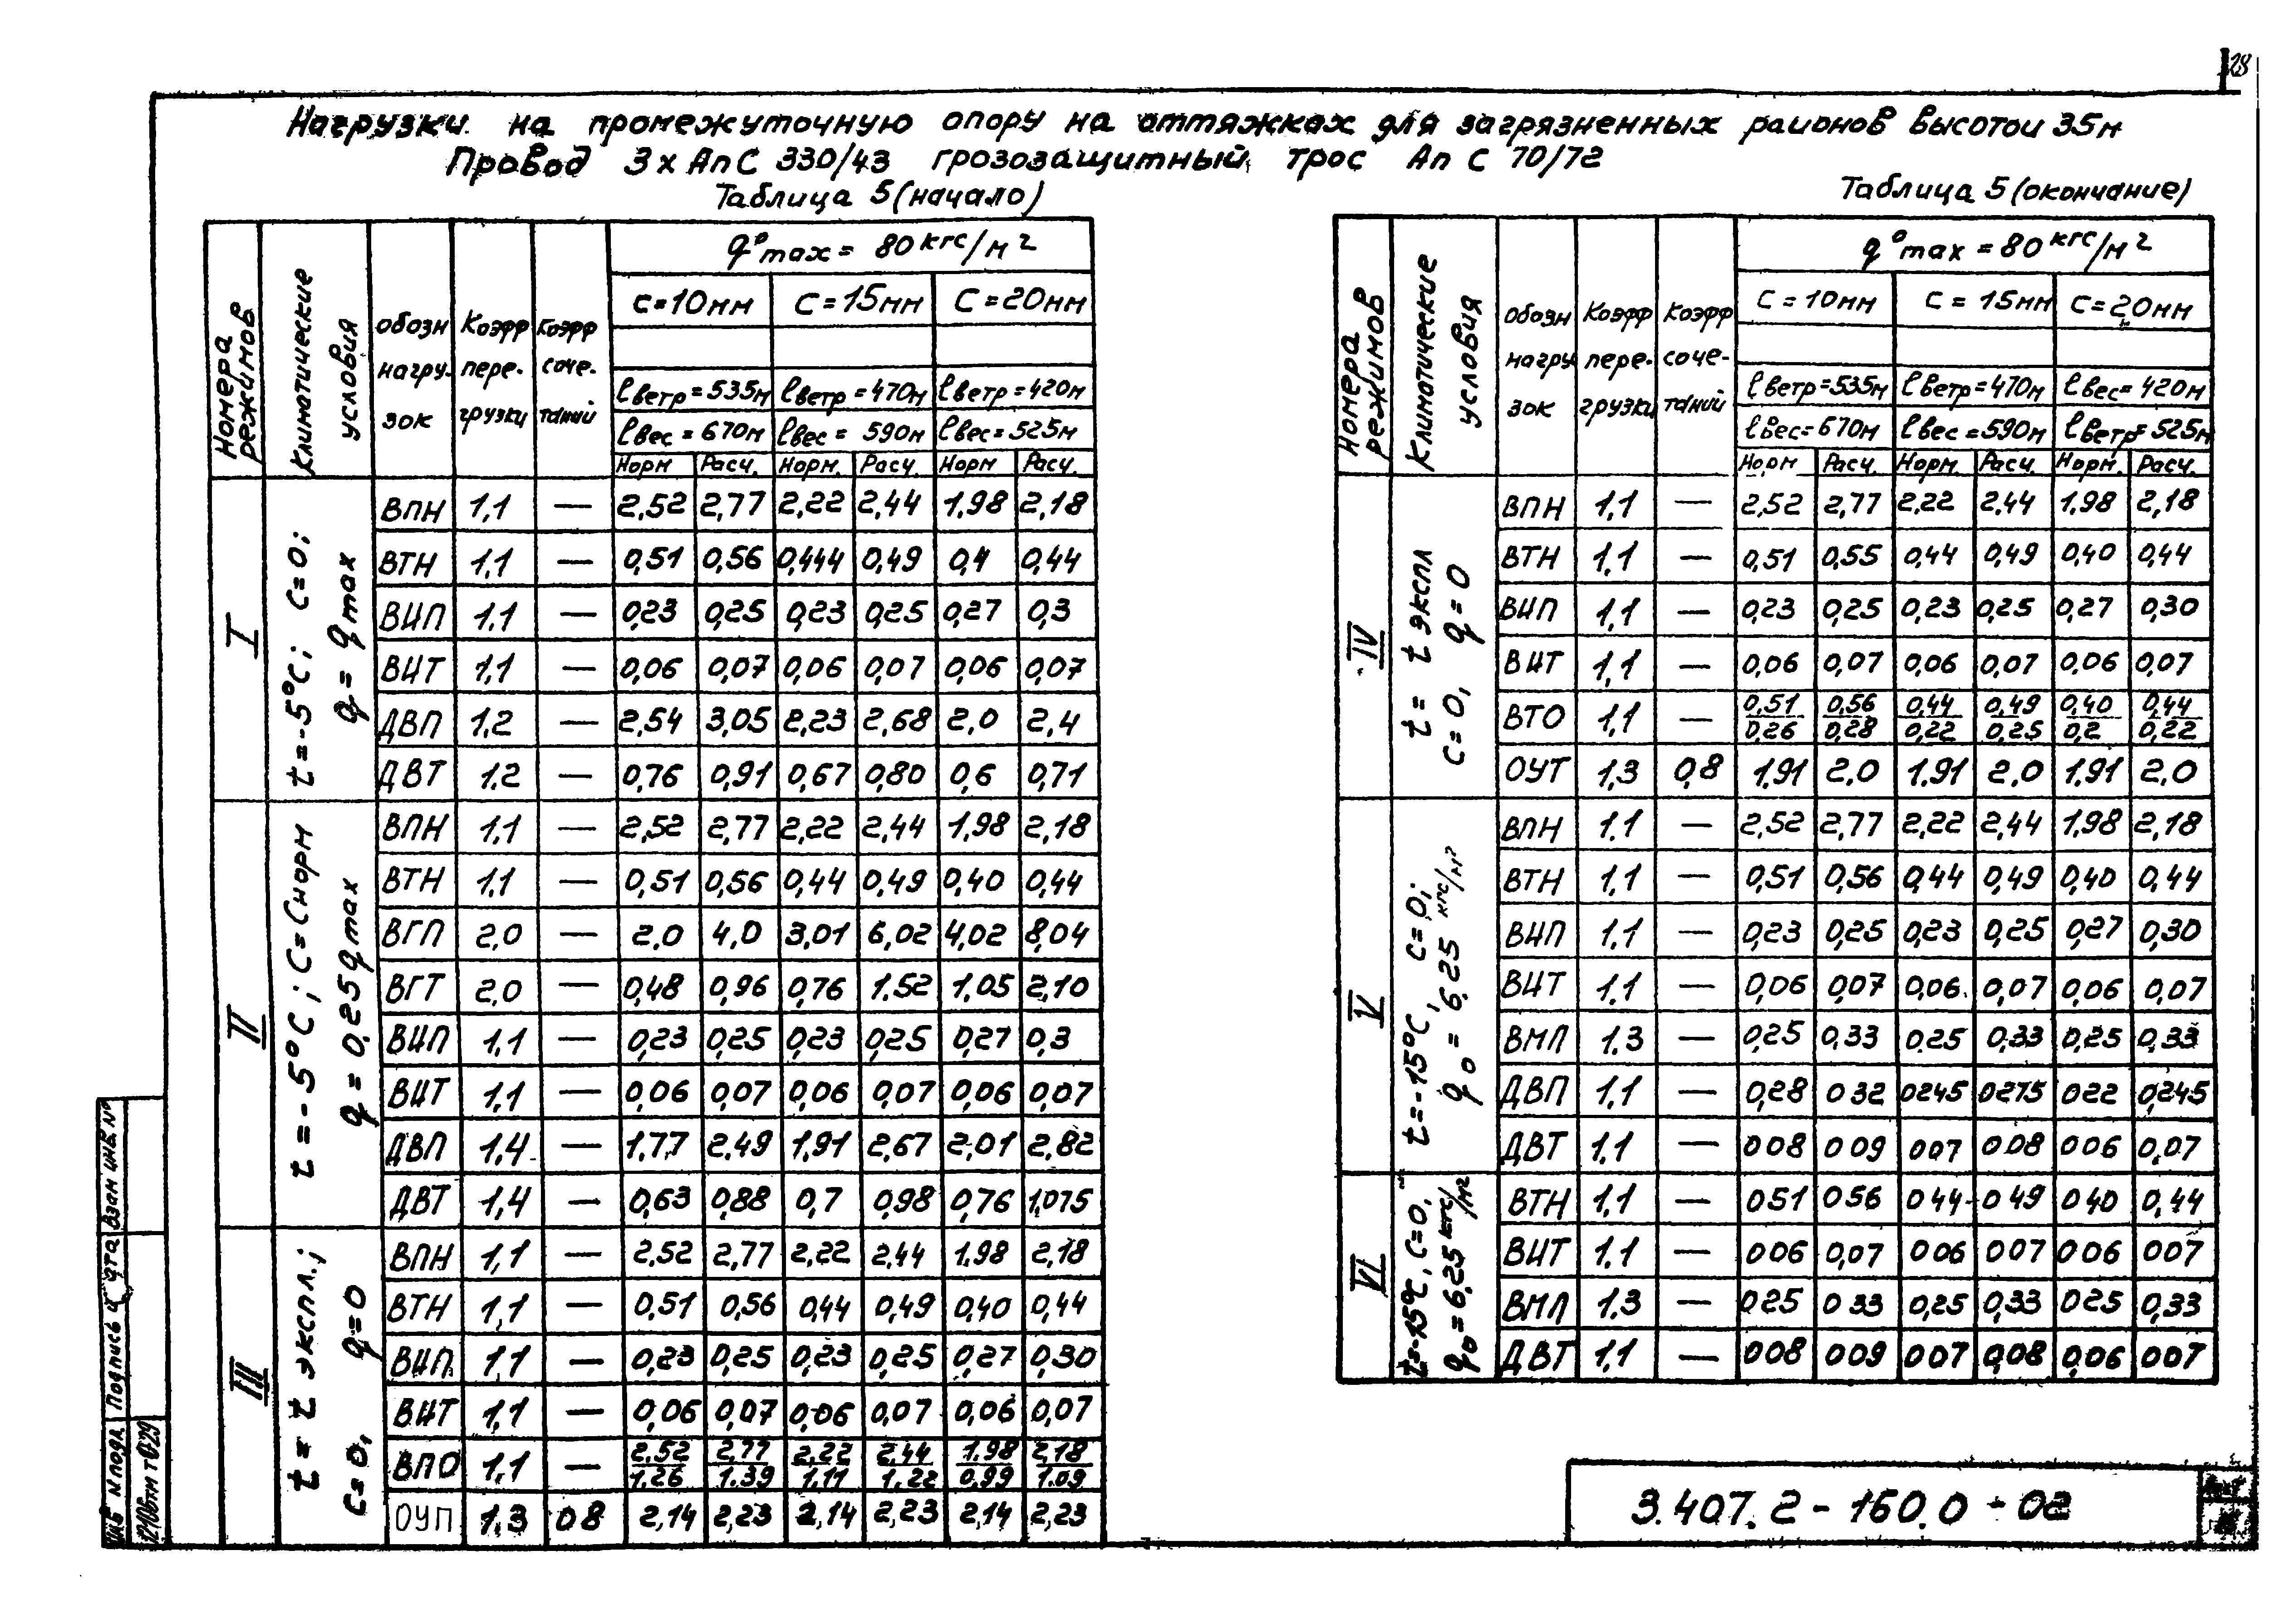 28
Нагрузки на промежуточную опору на оттяжках для загрязненных районов высотой 35м
Провод 3хАпС 330/43 грозозащитный трос АпС 70/72
Таблица 5 (начало)
Номера режимов | Климатические условия | обозн нагрузок | Коэфф пере-грузки | Коэфф соче-таний | q°max = 80 кгс/м²
с=10мм | С=15мм | С=20мм
ℓветр=535м | ℓветр=470м | ℓветр=420м
ℓвес=670м | ℓвес=590м | ℓвес=525м
Норм | Расч. | Норм. | Расч. | Норм | Расч.
I | t=-5°С; с=0; q=qmax
ВПН 1,1 — 2,52 2,77 2,22 2,44 1,98 2,18
ВТН 1,1 — 0,51 0,56 0,444 0,49 0,4 0,44
ВИП 1,1 — 0,23 0,25 0,23 0,25 0,27 0,3
ВИТ 1,1 — 0,06 0,07 0,06 0,07 0,06 0,07
ДВП 1,2 — 2,54 3,05 2,23 2,68 2,0 2,4
ДВТ 1,2 — 0,76 0,91 0,67 0,80 0,6 0,71
II | t=-5°С; С=Снорм q=0,25qmax
ВПН 1,1 — 2,52 2,77 2,22 2,44 1,98 2,18
ВТН 1,1 — 0,51 0,56 0,44 0,49 0,40 0,44
ВГП 2,0 — 2,0 4,0 3,01 6,02 4,02 8,04
ВГТ 2,0 — 0,48 0,96 0,76 1.52 1,05 2,10
ВИП 1,1 — 0,23 0,25 0,23 0,25 0,27 0,3
ВИТ 1,1 — 0,06 0,07 0,06 0,07 0,06 0,07
ДВП 1,4 — 1,77 2,49 1,91 2,67 2,01 2,82
ДВТ 1,4 — 0,63 0,88 0,7 0,98 0,76 1,075
III | t = t экспл.; с=0, q=0
ВПН 1,1 — 2,52 2,77 2,22 2,44 1,98 2,18
ВТН 1,1 — 0,51 0,56 0,44 0,49 0,40 0,44
ВИП 1,1 — 0,23 0,25 0,23 0,25 0,27 0,30
ВИТ 1,1 — 0,06 0,07 0,06 0,07 0,06 0,07
ВПО 1,1 — 2,52/1.26 2,77/1.39 2,22/1,11 2,44/1,22 1,98/0,99 2,18/1.09
ОУП 1,3 08 2,14 2,23 2,14 2,23 2,14 2,23
Таблица 5 (окончание)
Номера режимов | Климатические условия | обозн нагрузок | Коэфф пере-грузки | Коэфф соче-таний | q°max = 80 кгс/м²
С=10мм | С=15мм | С=20мм
ℓветр=535м | ℓветр=470м | ℓвес=420м
ℓвес=670м | ℓвес=590м | ℓветр=525м
Норм | Расч. | Норм. | Расч. | Норм. | Расч.
IV | t = t экспл с=0, q=0
ВПН 1,1 — 2,52 2,77 2,22 2,44 1,98 2,18
ВТН 1,1 — 0,51 0,55 0,44 0,49 0,40 0,44
ВИП 1,1 — 0,23 0,25 0,23 0,25 0,27 0,30
ВИТ 1,1 — 0,06 0,07 0,06 0,07 0,06 0,07
ВТО 1,1 — 0,51/0,26 0,56/0,28 0,44/0,22 0,49/0,25 0,40/0,2 0,44/0,22
ОУТ 1,3 0,8 1,91 2.0 1,91 2.0 1,91 2,0
V | t=-15°С, с=0; q₀=6,25 кгс/м²
ВПН 1.1 — 2,52 2,77 2,22 2,44 1,98 2,18
ВТН 1,1 — 0,51 0,56 0,44 0,49 0,40 0,44
ВИП 1,1 — 0,23 0,25 0,23 0,25 0,27 0,30
ВИТ 1.1 — 0,06 0,07 0,06 0,07 0,06 0,07
ВМП 1.3 — 0,25 0,33 0.25 0,33 0,25 0,33
ДВП 1,1 — 0,28 0 32 0245 0275 022 0,245
ДВТ 1.1 — 0 08 0 09 0 07 0.08 0 06 0,07
VI | t=-15°С, С=0, q₀=6,25 кгс/м²
ВТН 1.1 — 051 056 044 049 040 0,44
ВИТ 1.1 — 006 0,07 006 007 006 007
ВМП 1.3 — 025 033 0,25 0,33 025 0,33
ДВТ 1.1 — 008 009 007 0,08 0,06 007
Взам инв. №
Подпись и дата
Инв № подл.
3.407.2-160.0-02
Лист